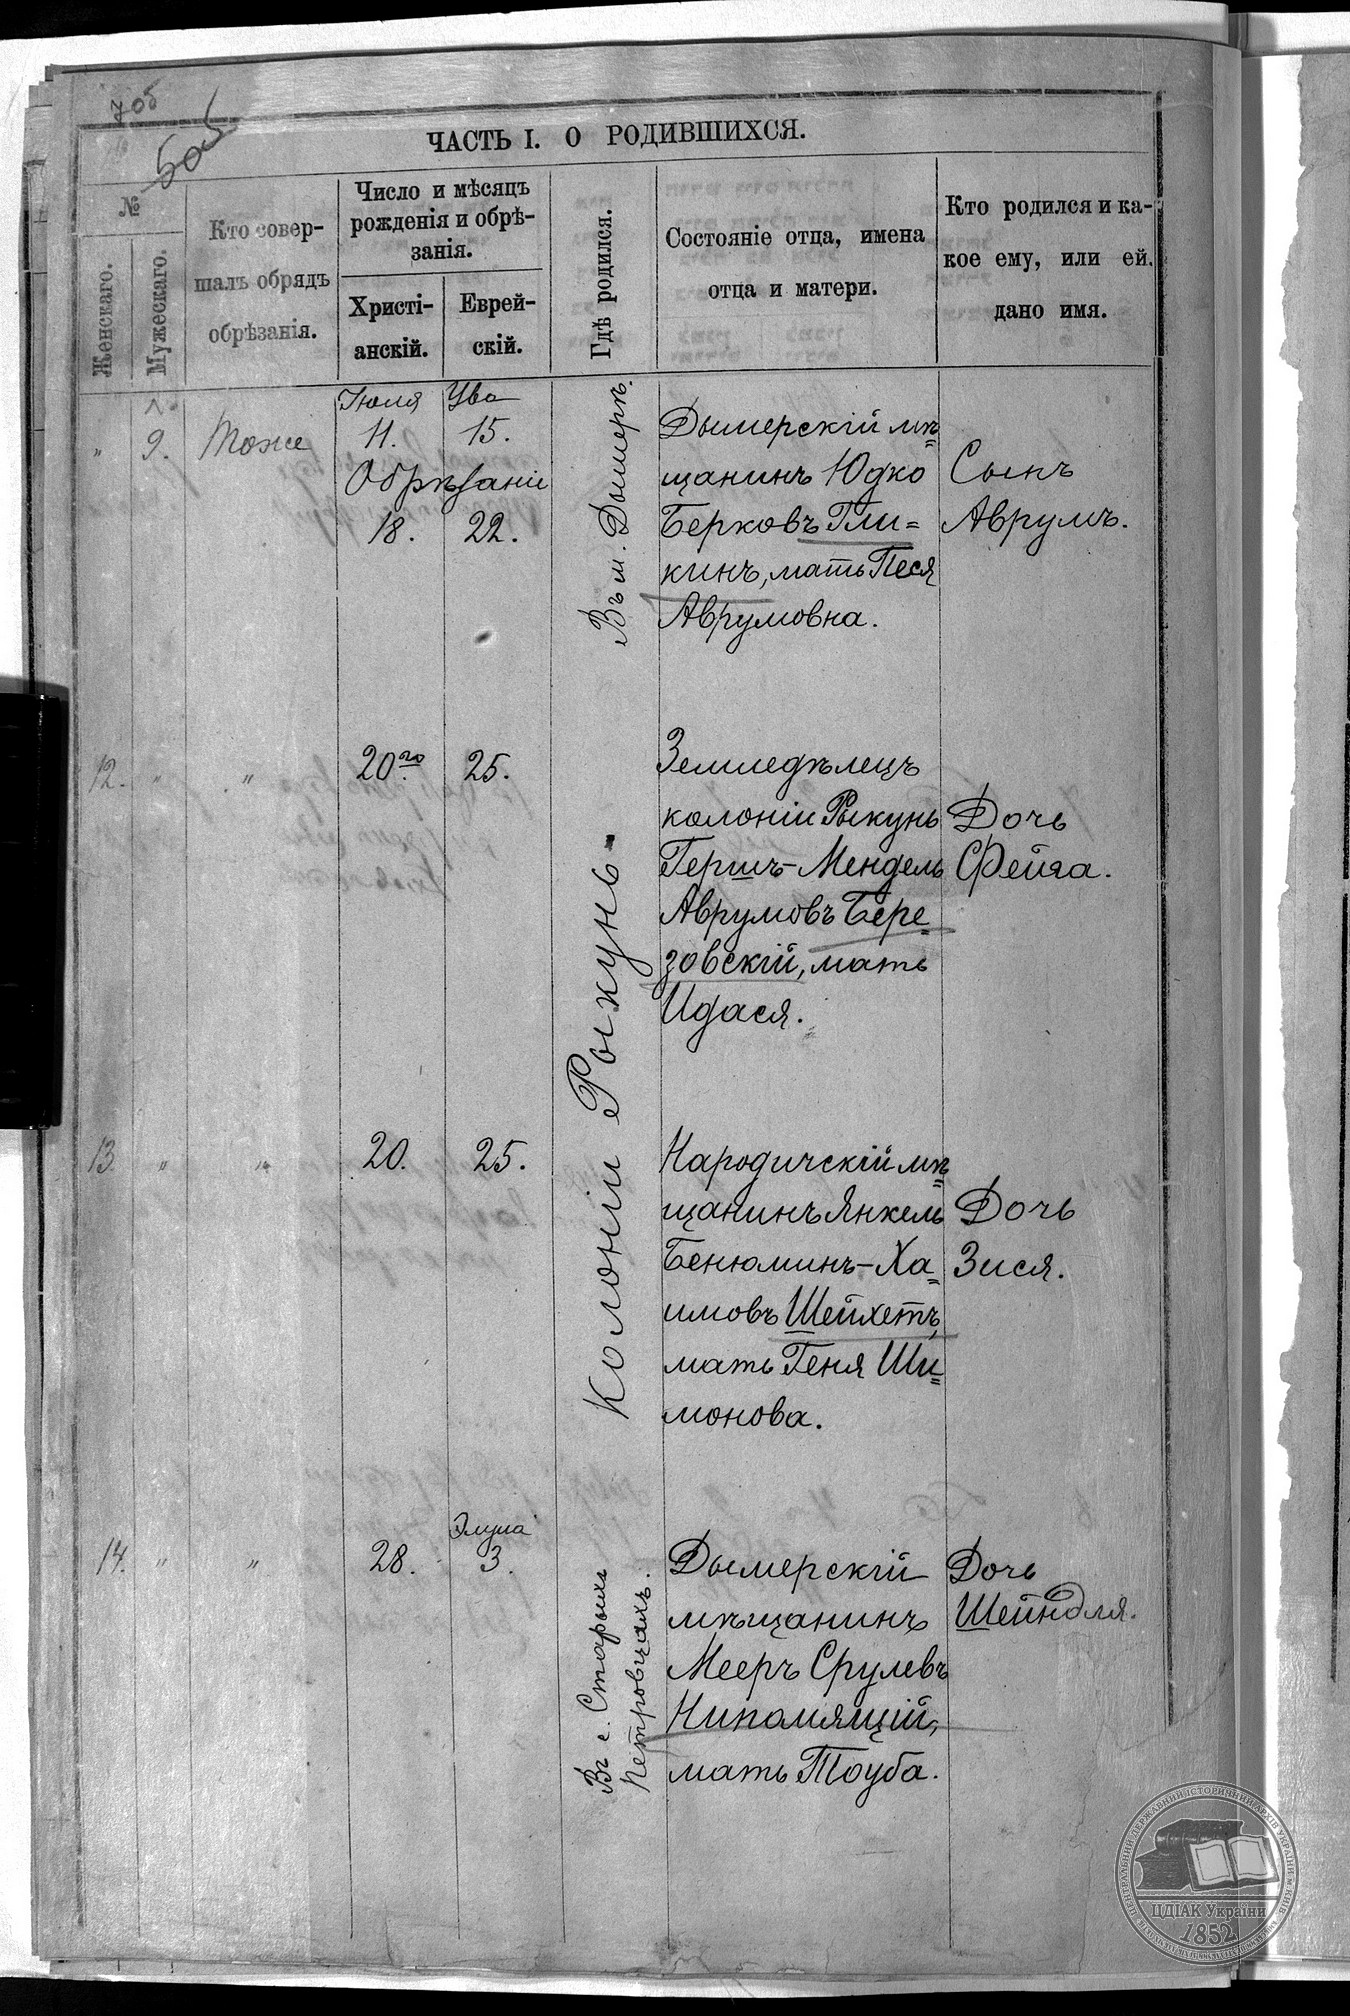 70б
50б
ЧАСТЬ I. О РОДИВШИХСЯ.
№
Женскаго.
Мужескаго.
Кто совер-
шалъ обрядъ
обрѣзанія.
Число и мѣсяцъ
рожденія и обрѣ-
занія.
Христі-
анскій.
Еврей-
скій.
Гдѣ родился.
Состояніе отца, имена
отца и матери.
Кто родился и ка-
кое ему, или ей.
дано имя.
„ 9. Тоже
Іюля Ува
11. 15.
Обрѣзаніи
18. 22.
Въ м. Дымеркъ.
Дымерскій мѣ=
щанинъ Юдко
Берковъ Гли=
кинъ, мать Песя
Аврумовна.
Сынъ
Аврумъ.
12. „ „ 20го 25.
Колоніи Рыкунь
Земледѣлецъ
колоніи Рыкунь
Гершъ-Мендель
Аврумовъ Бере=
зовскій, мать
Идася.
Дочь
Фейга.
13. „ „ 20. 25.
Народичскій мѣ=
щанинъ Янкель
Бенюминъ-Ха=
имовъ Шейхетъ,
мать Геня Ши=
монова.
Дочь
Зися.
14. „ „ 28. Элула 3.
Въ с. Старыхъ
Петровцахъ.
Дымерскій
мѣщанинъ
Мееръ Срулевъ
Нипомящій,
мать Тоуба.
Дочь
Шейндля.
ЦЕНТРАЛЬНИЙ ДЕРЖАВНИЙ ІСТОРИЧНИЙ АРХІВ УКРАЇНИ М.КИЇВ
ЦДІАК України
1852